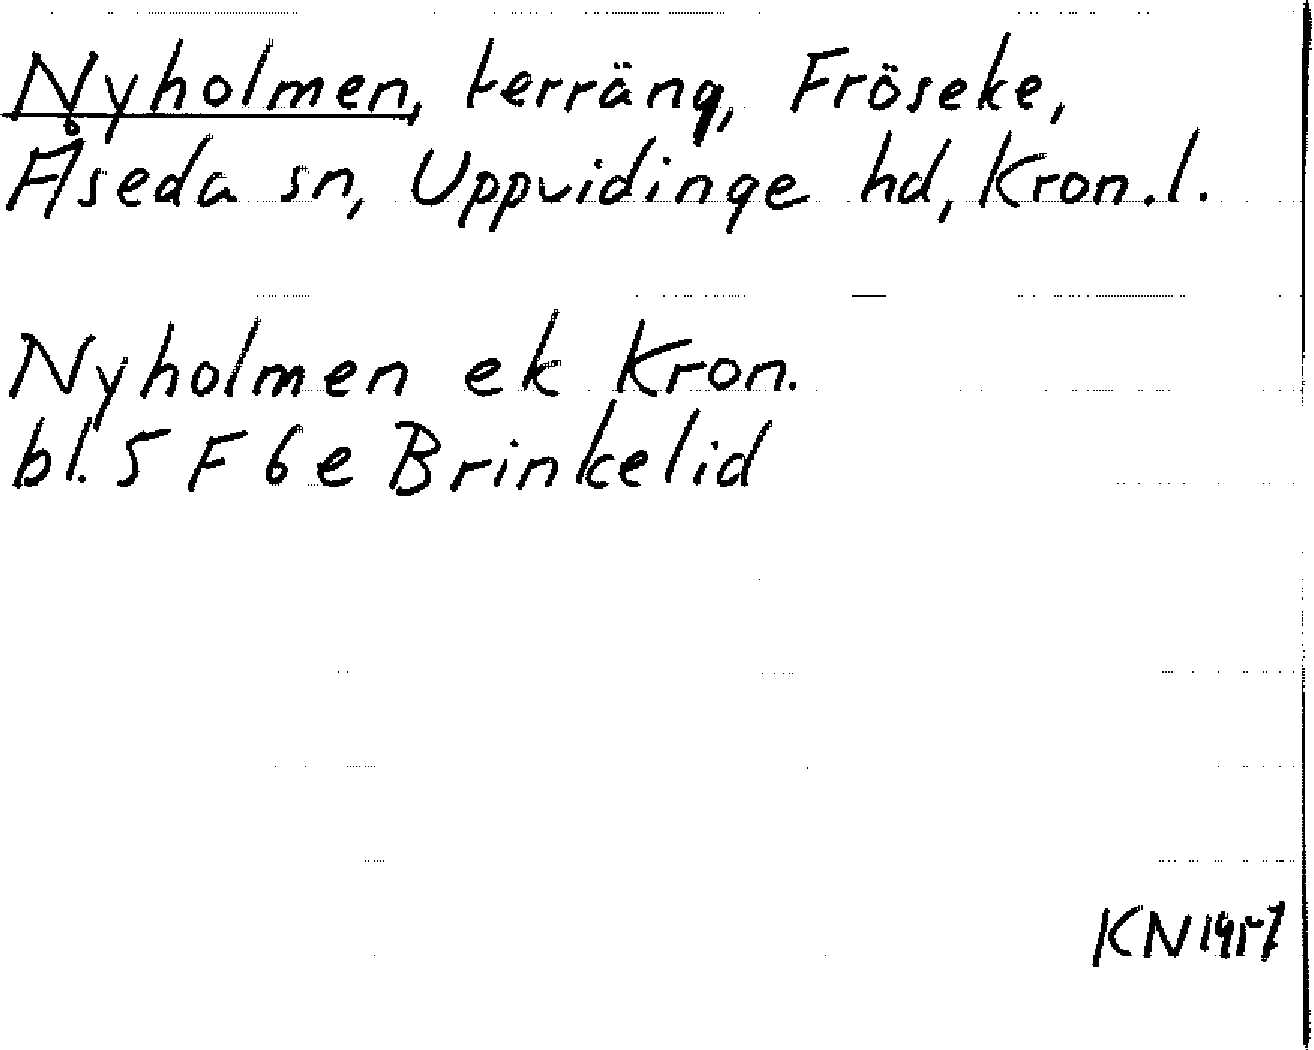 Nyholmen, terräng, Fröseke,
Åseda sn, Uppvidinge hd, Kron.l.
Nyholmen ek Kron.
bl. 5 F 6 e Brinkelid
KN 1957